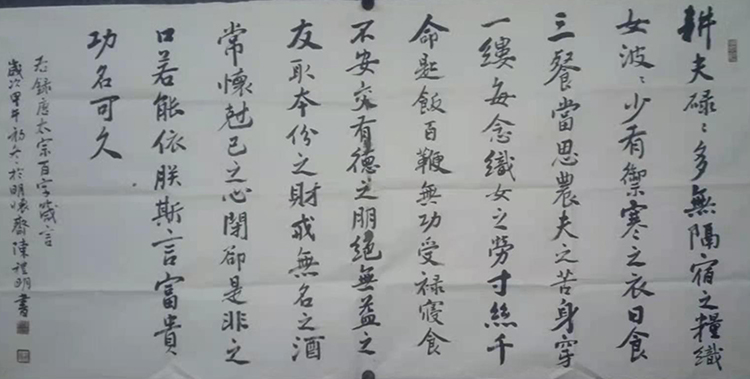 耕夫碌〻多無隔宿之糧織
女波〻少有禦寒之衣日食
三餐當思農夫之苦身穿
一縷每念織女之勞寸絲千
命匙飯百鞭無功受禄寢食
不安交有德之朋絕無益之
友取本份之財戒無名之酒
常懷尅己之心閉卻是非之
口若能依朕斯言富貴
功名可久
錄唐太宗百字箴言
歲次甲午初冬於明懷齋陳禮明書